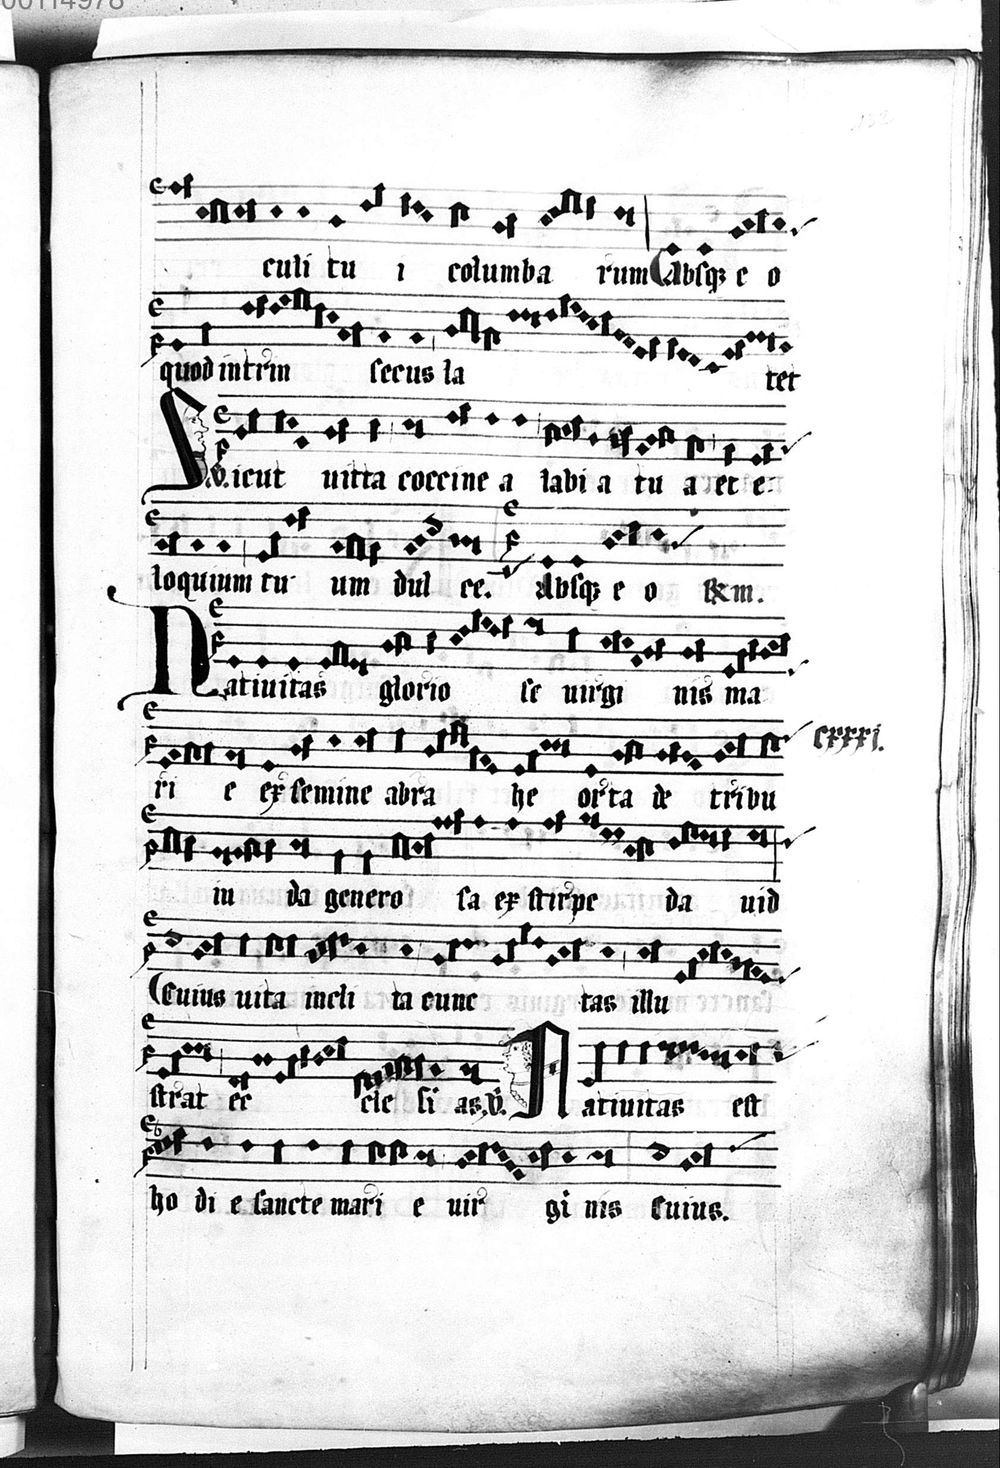 00114978
132
culi tu i columba rum Absqꝫ e o
quod intrin secus la tet
S. V. icut uitta coccine a labi a tu a et e
loquium tu um dul ce. Absqꝫ e o
Natiuitas glorio se uirgi nis ma
ri e ex semine abra he orta de tribu
cxxxi.
iu da genero sa ex stirpe da uid
Cuius uita incli ta cunc tas illu
strat ec cle si as. V. Natiuitas est
ho di e sancte mari e uir gi nis Cuius.